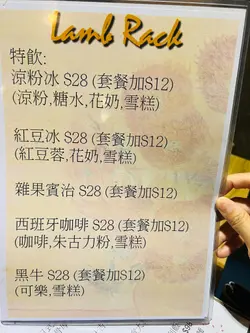 Lamb Rack
特飲:
涼粉冰 S28 (套餐加S12)
(涼粉,糖水,花奶,雪糕)
紅豆冰 S28 (套餐加S12)
(紅豆蓉,花奶,雪糕)
雜果賓治 S28 (套餐加S12)
西班牙咖啡 S28 (套餐加S12)
(咖啡,朱古力粉,雪糕)
黑牛 S28 (套餐加S12)
(可樂,雪糕)